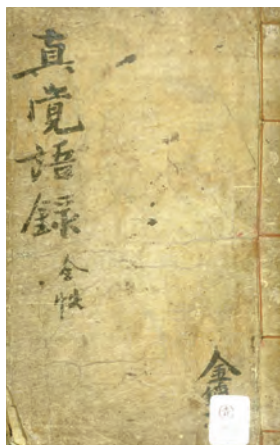 真覺語錄
全帙
金